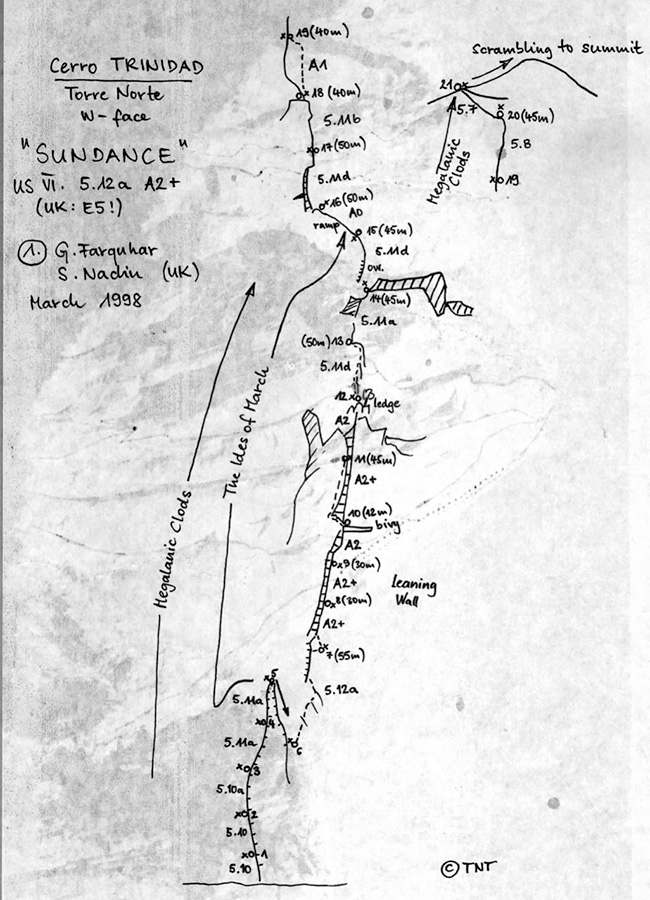 Cerro TRINIDAD
Torre Norte
W-face
"SUNDANCE"
US VI. 5.12a A2+
(UK: E5!)
1. G. Farquhar
S. Nadin (UK)
March 1998
19 (40m)
A1
18 (40m)
5.11b
17 (50m)
5.11d
16 (50m)
A0
ramp
15 (45m)
5.11d
ow.
14 (45m)
5.11a
(50m) 13
5.11d
12
ledge
A2
11 (45m)
A2+
10 (12m)
bivy
A2
9 (30m)
A2+
8 (30m)
A2+
7 (55m)
5.12a
leaning
Wall
5
5.11a
4
6
5.11a
3
5.10a
2
5.10
1
5.10
Hegalanic Clods
The Ides of March
scrambling to summit
21
5.7
20 (45m)
5.8
19
Megalanic
Clods
© TNT